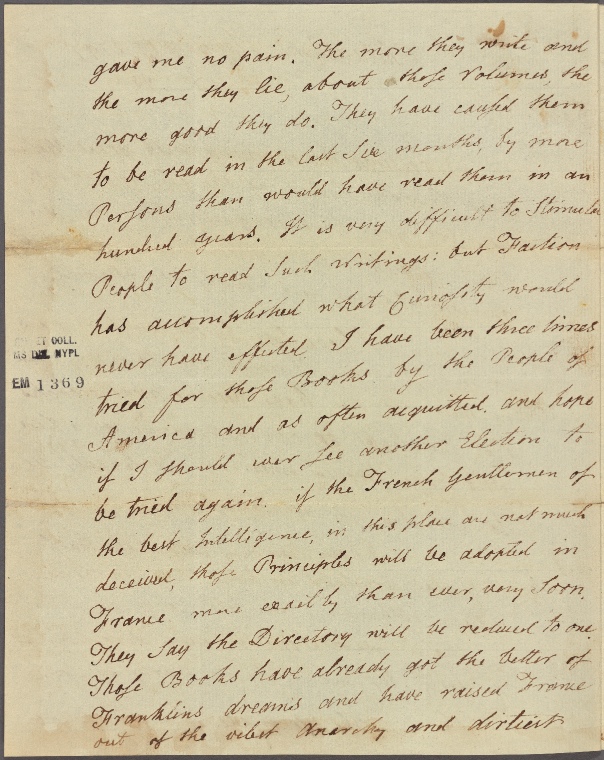 gave me no pain. The more they write and
the more they lie, about those Volumes, the
more good they do. They have caused them
to be read in the last Six months, by more
Persons than would have read them in an
hundred years. It is very difficult to Stimulate
People to read Such writings: but Faction
has accomplished what Curiosity would
never have effected. I have been three times
tried for those Books by the People of
America and as often acquitted. and hope
if I should ever See another Election to
be tried again. if the French Gentlemen of
the best Intelligence, in this place are not much
deceived, those Principles will be adopted in
France more easily than ever, very Soon.
They Say the Directory will be reduced to one.
Those Books have already got the better of
Franklins dreams and have raised France
out of the vilest Anarchy and dirtiest
ET COLL.
MS DEL. NYPL
EM 1369